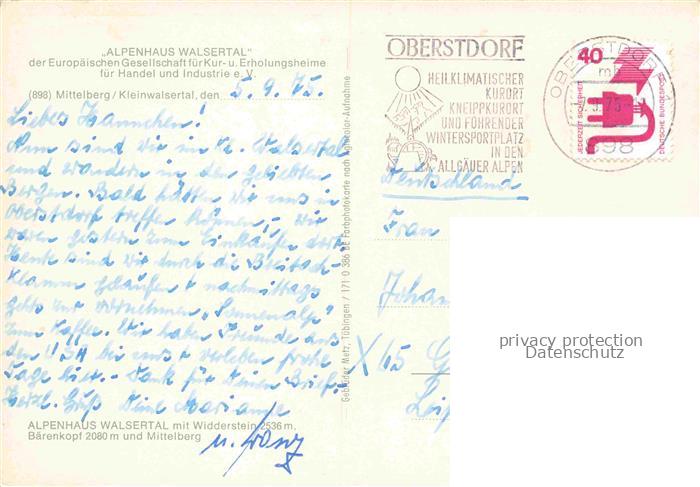 „ALPENHAUS WALSERTAL"
der Europäischen Gesellschaft für Kur- u. Erholungsheime
für Handel und Industrie e. V.
(898) Mittelberg / Kleinwalsertal, den 5.9.75.
Liebes Hannchen!
Nun sind wir im kl. Walsertal
und wandern in den geliebten
Bergen. Bald hätten wir uns in
Oberstdorf treffen können, – wir
waren gestern zum Einkaufen dort.
Heute sind wir durch die Breitach-
klamm gelaufen + nachmittags
gehts zur vornehmen „Sonnenalp"
zum Kaffee. Wir haben Freunde aus
den USA bei uns + verleben frohe
Tage hier. – Dank für Deinen Brief.
Herzl. Gruß Deine Marianne
u.
ALPENHAUS WALSERTAL mit Widderstein 2536 m,
Bärenkopf 2080 m und Mittelberg
Gebrüder Metz, Tübingen / 171 0 386 BE Farbphotokarte nach Agfacolor-Aufnahme
OBERSTDORF
HEILKLIMATISCHER
KURORT
KNEIPPKURORT
UND FÜHRENDER
WINTERSPORTPLATZ
IN DEN
ALLGÄUER ALPEN
OBERSTDORF
mb
5.9.75
898
40
JEDERZEIT SICHERHEIT
DEUTSCHE BUNDESPOST
Deutschland
Frau
Johan
X 65 G
Leip
privacy protection
Datenschutz